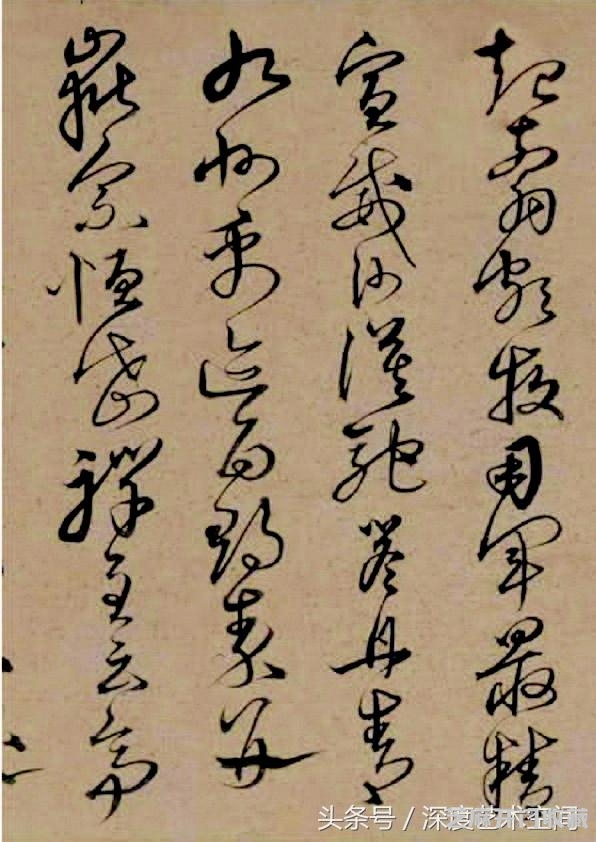 起翦頗牧用軍最精
宣威沙漠馳譽丹青
九州禹迹百郡秦并
嶽宗恒岱禪主云亭
头条号 / 深度艺术空间